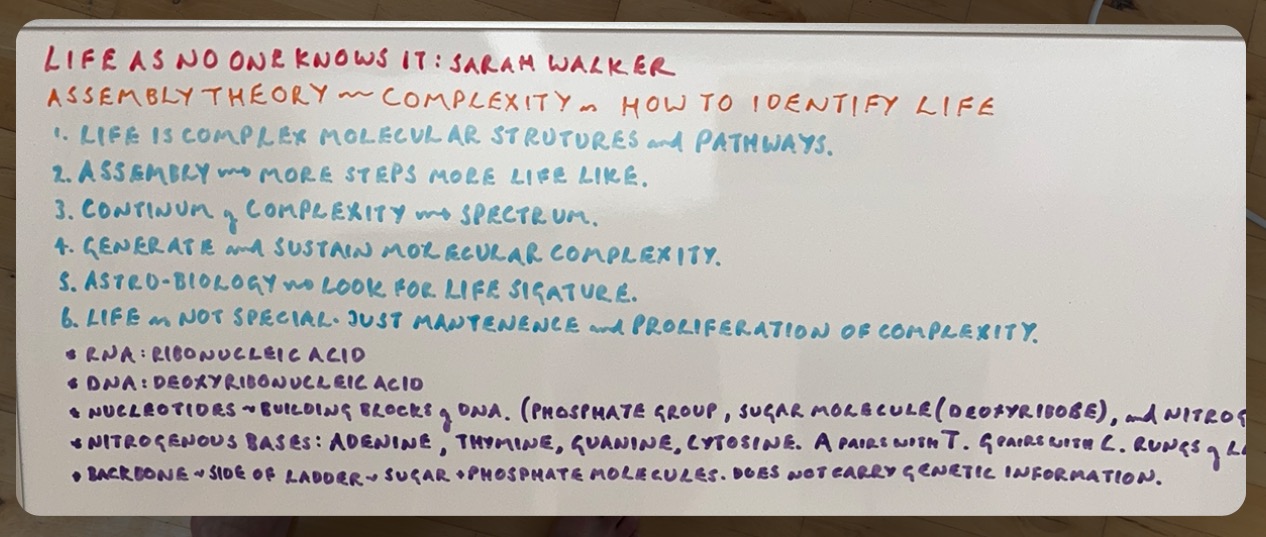 LIFE AS NO ONE KNOWS IT: SARAH WALKER
ASSEMBLY THEORY ~ COMPLEXITY ~ HOW TO IDENTIFY LIFE
1. LIFE IS COMPLEX MOLECULAR STRUTURES and PATHWAYS.
2. ASSEMBLY ~ MORE STEPS MORE LIFE LIKE.
3. CONTINUM of COMPLEXITY ~ SPECTRUM.
4. GENERATE and SUSTAIN MOLECULAR COMPLEXITY.
5. ASTRO-BIOLOGY ~ LOOK FOR LIFE SIGATURE.
6. LIFE ~ NOT SPECIAL. JUST MANTENENCE and PROLIFERATION OF COMPLEXITY.
* RNA: RIBONUCLEIC ACID
* DNA: DEOXYRIBONUCLEIC ACID
* NUCLEOTIDES ~ BUILDING BLOCKS of DNA. (PHOSPHATE GROUP, SUGAR MOLECULE (DEOXYRIBOBE), and NITROG
* NITROGENOUS BASES: ADENINE, THYMINE, GUANINE, CYTOSINE. A PAIRS WITH T. G PAIRS WITH C. RUNGS of
* BACKBONE ~ SIDE OF LADDER ~ SUGAR + PHOSPHATE MOLECULES. DOES NOT CARRY GENETIC INFORMATION.